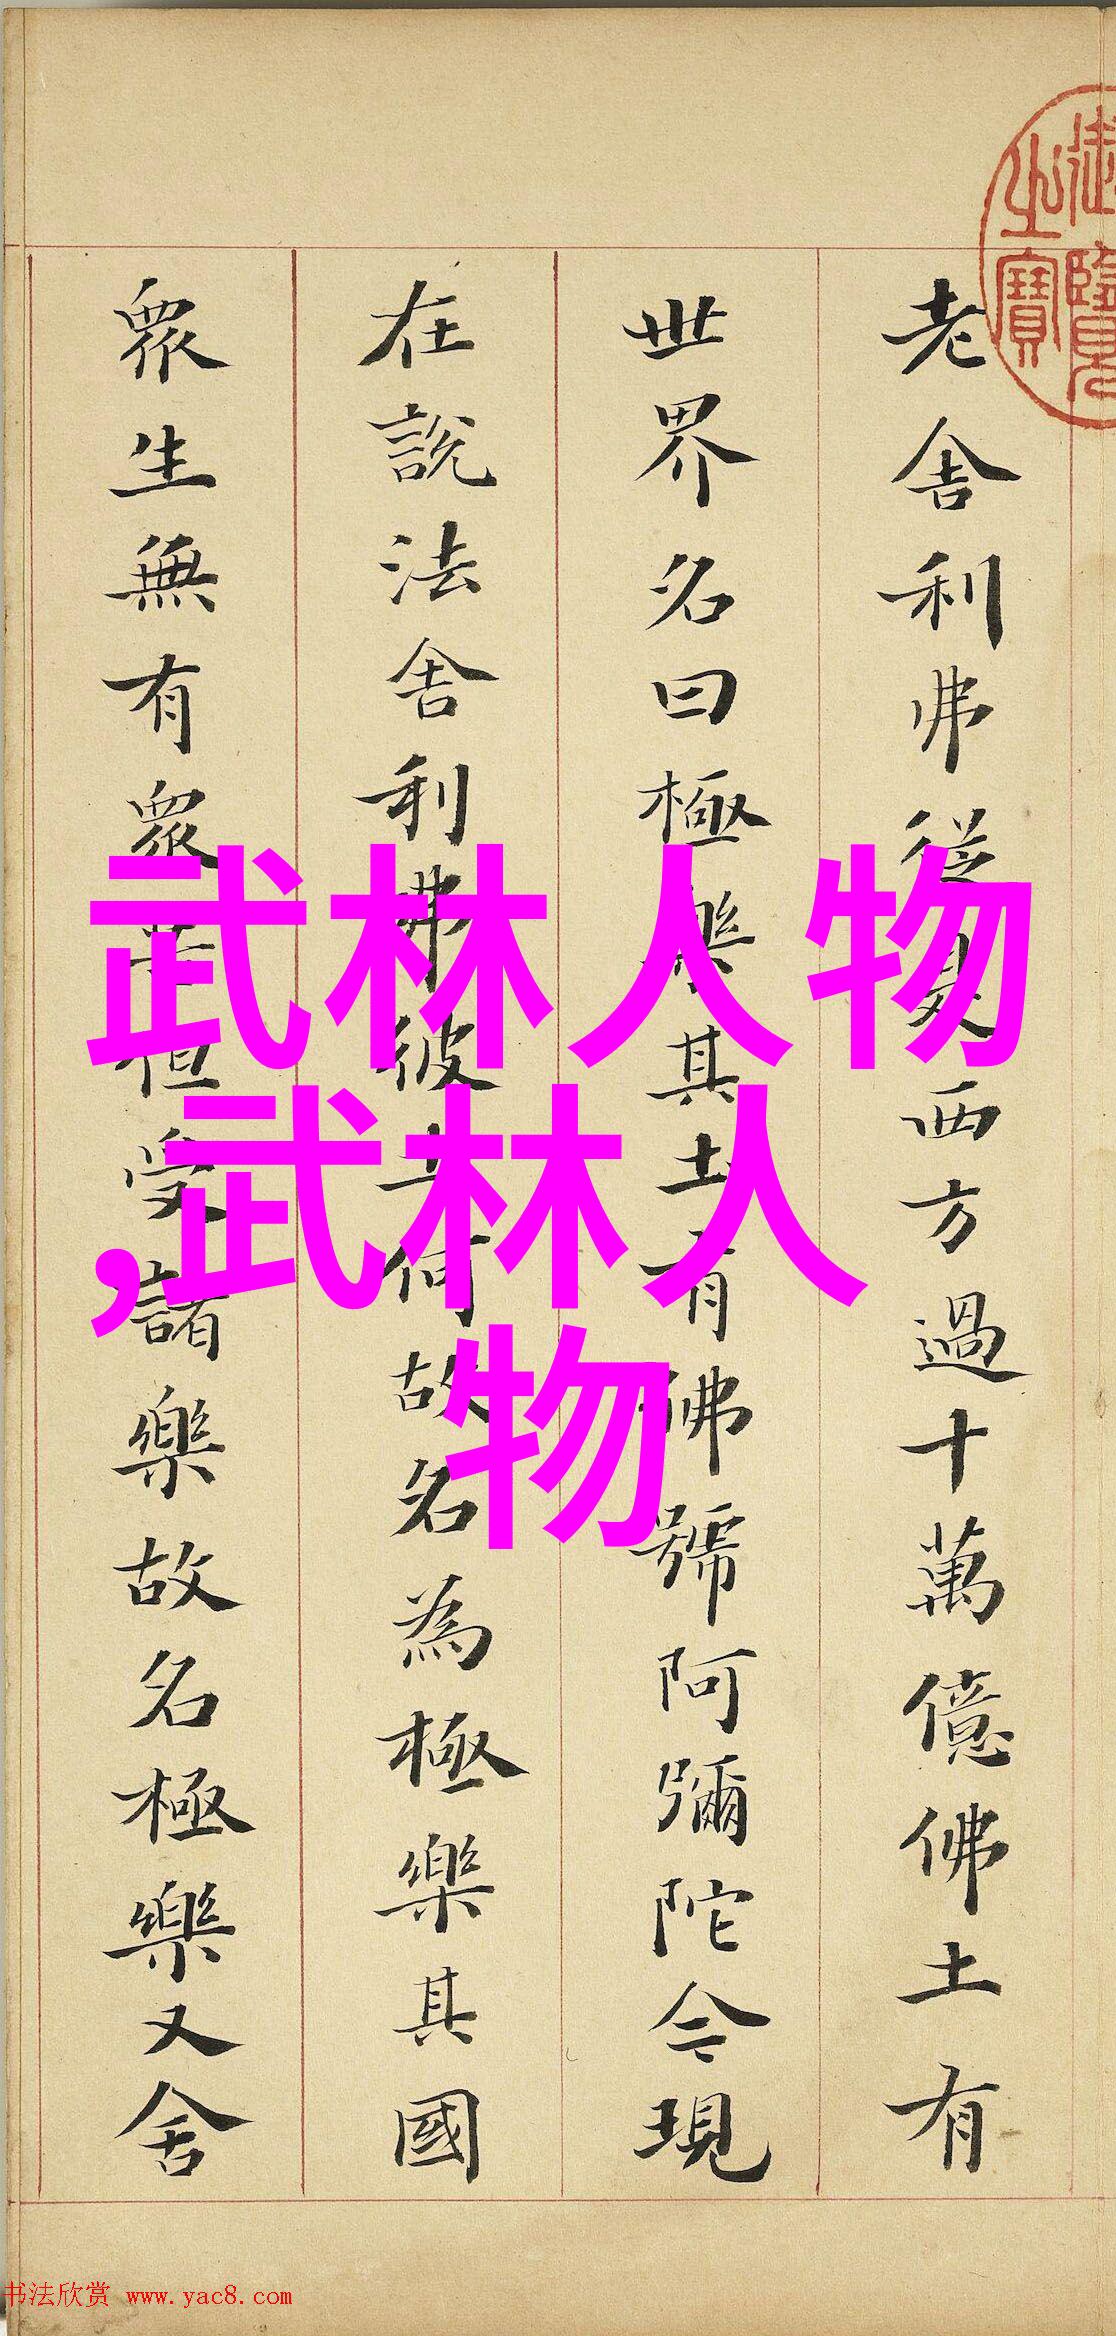 武林人物
,武林人
物
老舍利弗從是西方過十萬億佛土有
世界名曰極樂其土有佛號阿彌陀今現
在說法舍利弗彼土何故名為極樂其國
眾生無有眾苦但受諸樂故名極樂又舍
御覽
之寶
书法欣赏 www.yac8.com